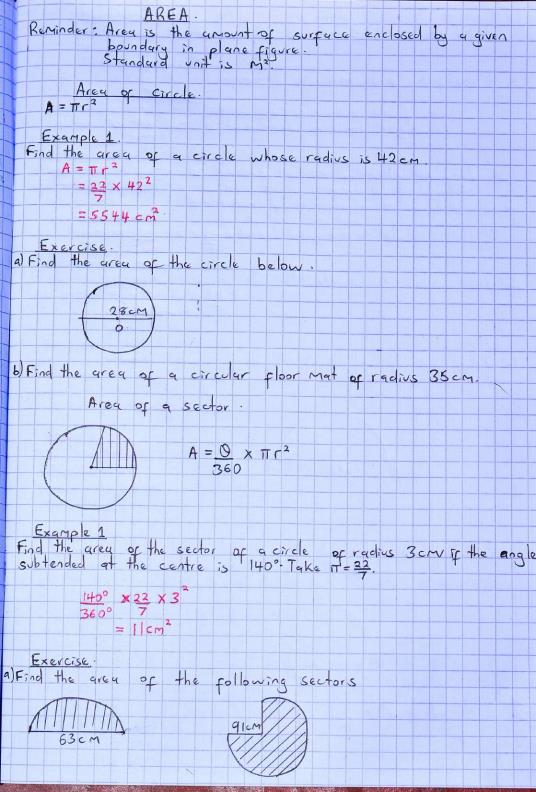 AREA.
Reminder: Area is the amount of surface enclosed by a given
boundary in plane figure.
Standard unit is M².
Area of circle.
A = πr²
Example 1.
Find the area of a circle whose radius is 42cm.
A = πr²
= 22/7 × 42²
= 5544 cm²
Exercise.
a) Find the area of the circle below.
28cm
O
b) Find the area of a circular floor mat of radius 35cm.
Area of a sector.
A = θ/360 × πr²
Example 1
Find the area of the sector of a circle of radius 3cm if the angle
subtended at the centre is 140°. Take π = 22/7.
140°/360° × 22/7 × 3²
= 11cm²
Exercise.
a) Find the area of the following sectors
63cm
91cm